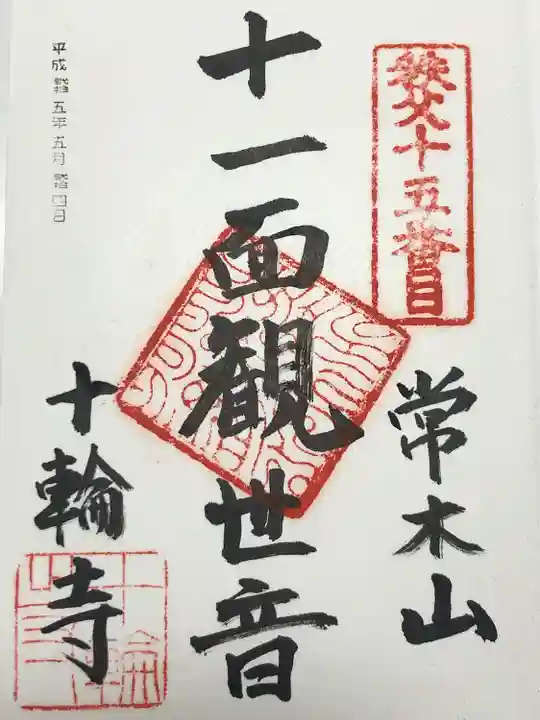 秩父十五番目
常木山
十一面観世音
十輪寺
平成 五年五月 四日